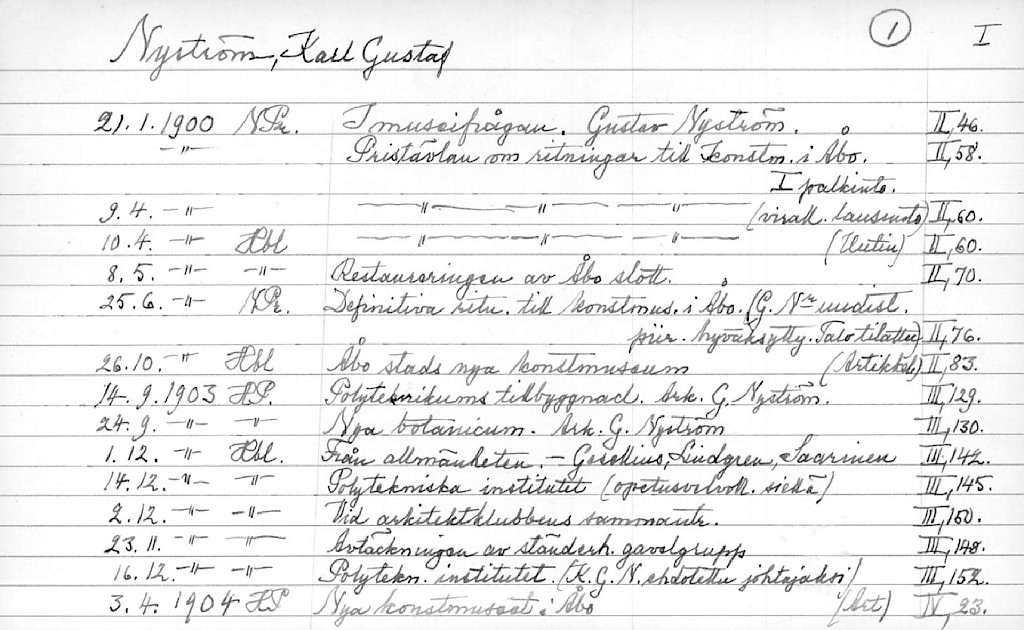 ① I
Nyström, Karl Gustaf
21.1.1900 NPr. I museifrågan. Gustav Nyström. II,46.
-"- Pristävlan om ritningar till konstm. i Åbo. II,58.
I palkinto.
9.4. -"- -"- -"- -"- (virall. lausunto) II,60.
10.4. -"- Hbl -"- -"- (Uutin) II,60.
8.5. -"- -"- Restaureringen av Åbo slott. II,70.
25.6. -"- NPr. Definitiva ritn. till konstmus. i Åbo. (G. N:n uudist.
piir. hyväksytty. Talo tilattu) II,76.
26.10. -"- Hbl Åbo stads nya konstmuseum (Artikkeli) II,83.
14.9.1903 HP. Polyteknikums tillbyggnad. Ark. G. Nyström. III,129.
24.9. -"- -"- Nya botanicum. Ark. G. Nyström III,130.
1.12. -"- Hbl. Från allmänheten. - Gesellius, Lindgren, Saarinen III,142.
14.12. -"- -"- Polytekniska institutet (opetusvelvoll. siellä) III,145.
2.12. -"- -"- Vid arkitektklubbens sammantr. III,150.
23.11. -"- -"- Avtäckningen av ständerh. gavelgrupp III,148.
16.12. -"- -"- Polytekn. institutet. (K.G.N. ehdotettu johtajaksi) III,152.
3.4.1904 HP Nya konstmuseet i Åbo (Art) IV,23.